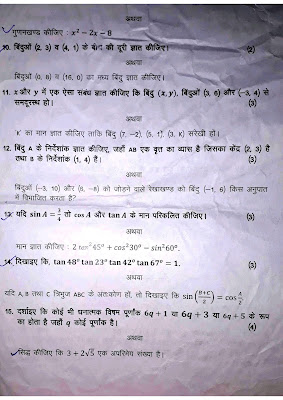 अथवा
गुणनखण्ड कीजिए : x² − 2x − 8
10. बिंदुओं (2, 3) व (4, 1) के बीच की दूरी ज्ञात कीजिए। (2)
अथवा
बिंदुओं (0, 8) व (16, 0) का मध्य बिंदु ज्ञात कीजिए।
11. x और y में एक ऐसा संबंध ज्ञात कीजिए कि बिंदु (x, y), बिंदुओं (3, 6) और (−3, 4) से
समदूरस्थ हो। (3)
अथवा
'K' का मान ज्ञात कीजिए ताकि बिंदु (7, −2), (5, 1), (3, K) सरेखी हों।
12. बिंदु A के निर्देशांक ज्ञात कीजिए, जहाँ AB एक वृत्त का व्यास है जिसका केंद्र (2, 3) है
तथा B के निर्देशांक (1, 4) हैं। (3)
अथवा
बिंदुओं (−3, 10) और (6, −8) को जोड़ने वाले रेखाखण्ड को बिंदु (−1, 6) किस अनुपात
में विभाजित करता है?
13. यदि sin A = 3/4 तो cos A और tan A के मान परिकलित कीजिए। (3)
अथवा
मान ज्ञात कीजिए : 2 tan²45° + cos²30° − sin²60°.
14. दिखाइए कि, tan 48° tan 23° tan 42° tan 67° = 1. (3)
अथवा
यदि A, B तथा C त्रिभुज ABC के अंतःकोण हों, तो दिखाइए कि sin ((B+C)/2) = cos A/2
15. दर्शाइए कि कोई भी धनात्मक विषम पूर्णांक 6q + 1 या 6q + 3 या 6q + 5 के रूप
का होता है जहाँ q कोई पूर्णांक है। (4)
अथवा
सिद्ध कीजिए कि 3 + 2√5 एक अपरिमेय संख्या है।